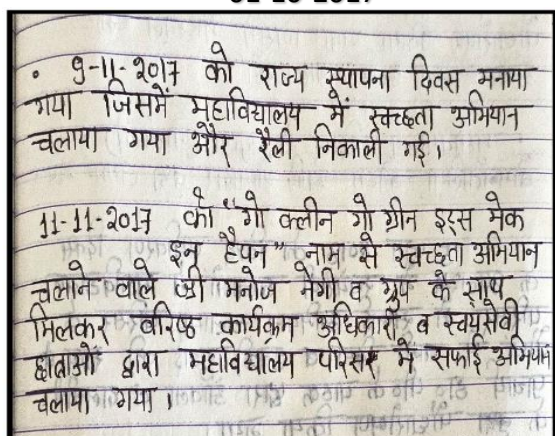 • 9-11-2017 को राज्य स्थापना दिवस मनाया
गया जिसमें महाविद्यालय में स्वच्छता अभियान
चलाया गया और रैली निकाली गई।
11-11-2017 को "गो क्लीन गो ग्रीन इट्स मेक
इन हैवन" नाम से स्वच्छता अभियान
चलाने वाले श्री मनोज नेगी व ग्रुप के साथ
मिलकर वरिष्ठ कार्यक्रम अधिकारी व स्वयंसेवी
छात्राओं द्वारा महाविद्यालय परिसर में सफाई अभियान
चलाया गया।